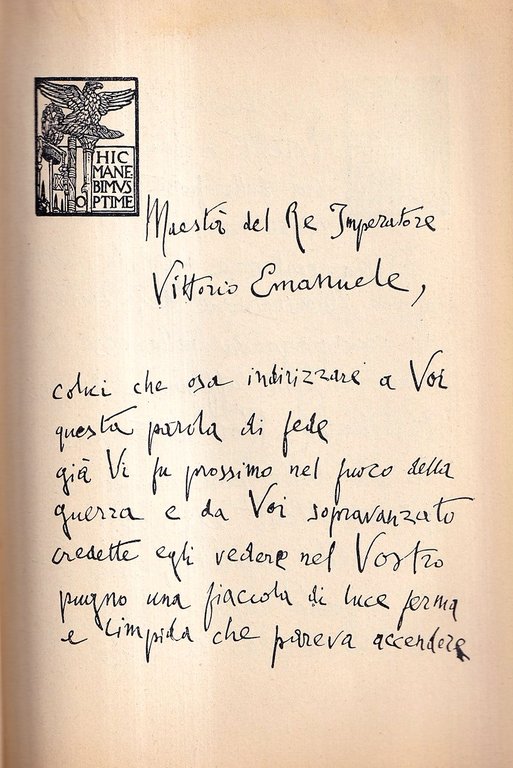 HIC
MANE
BIMVS
OPTIME
Maestà del Re Imperatore
Vittorio Emanuele,
colui che osa indirizzare a Voi
questa parola di fede
già Vi fu prossimo nel fuoco della
guerra e da Voi sopravanzato
credette egli vedere nel Vostro
pugno una fiaccola di luce ferma
e limpida che pareva accendere